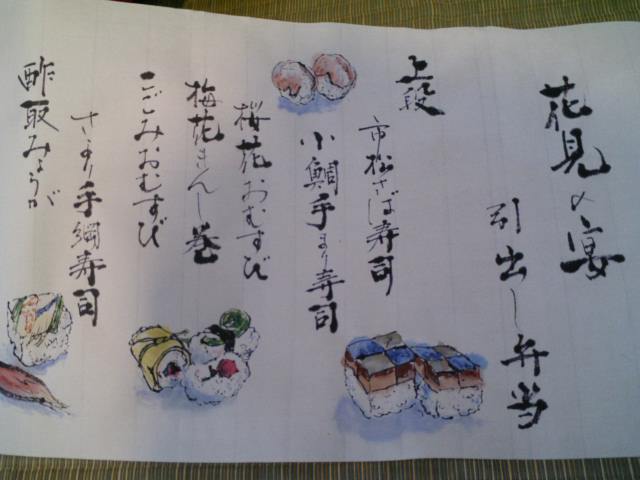 花見の宴
引出し弁当
上段
市松さば寿司
小鯛手まり寿司
桜花おむすび
梅花まんし巻
こごみおむすび
さより手綱寿司
酢取みょうが